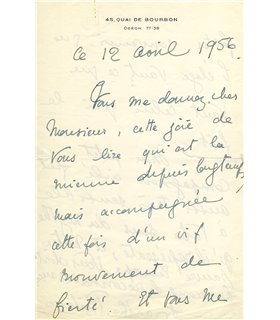 45, QUAI DE BOURBON
ODÉON 77-38
ce 12 avril 1956
Vous me donnez, cher
Monsieur, cette joie de
vous lire qui est la
mienne depuis longtemps,
mais accompagnée
cette fois d'un vif
mouvement de
fierté. Et vous me